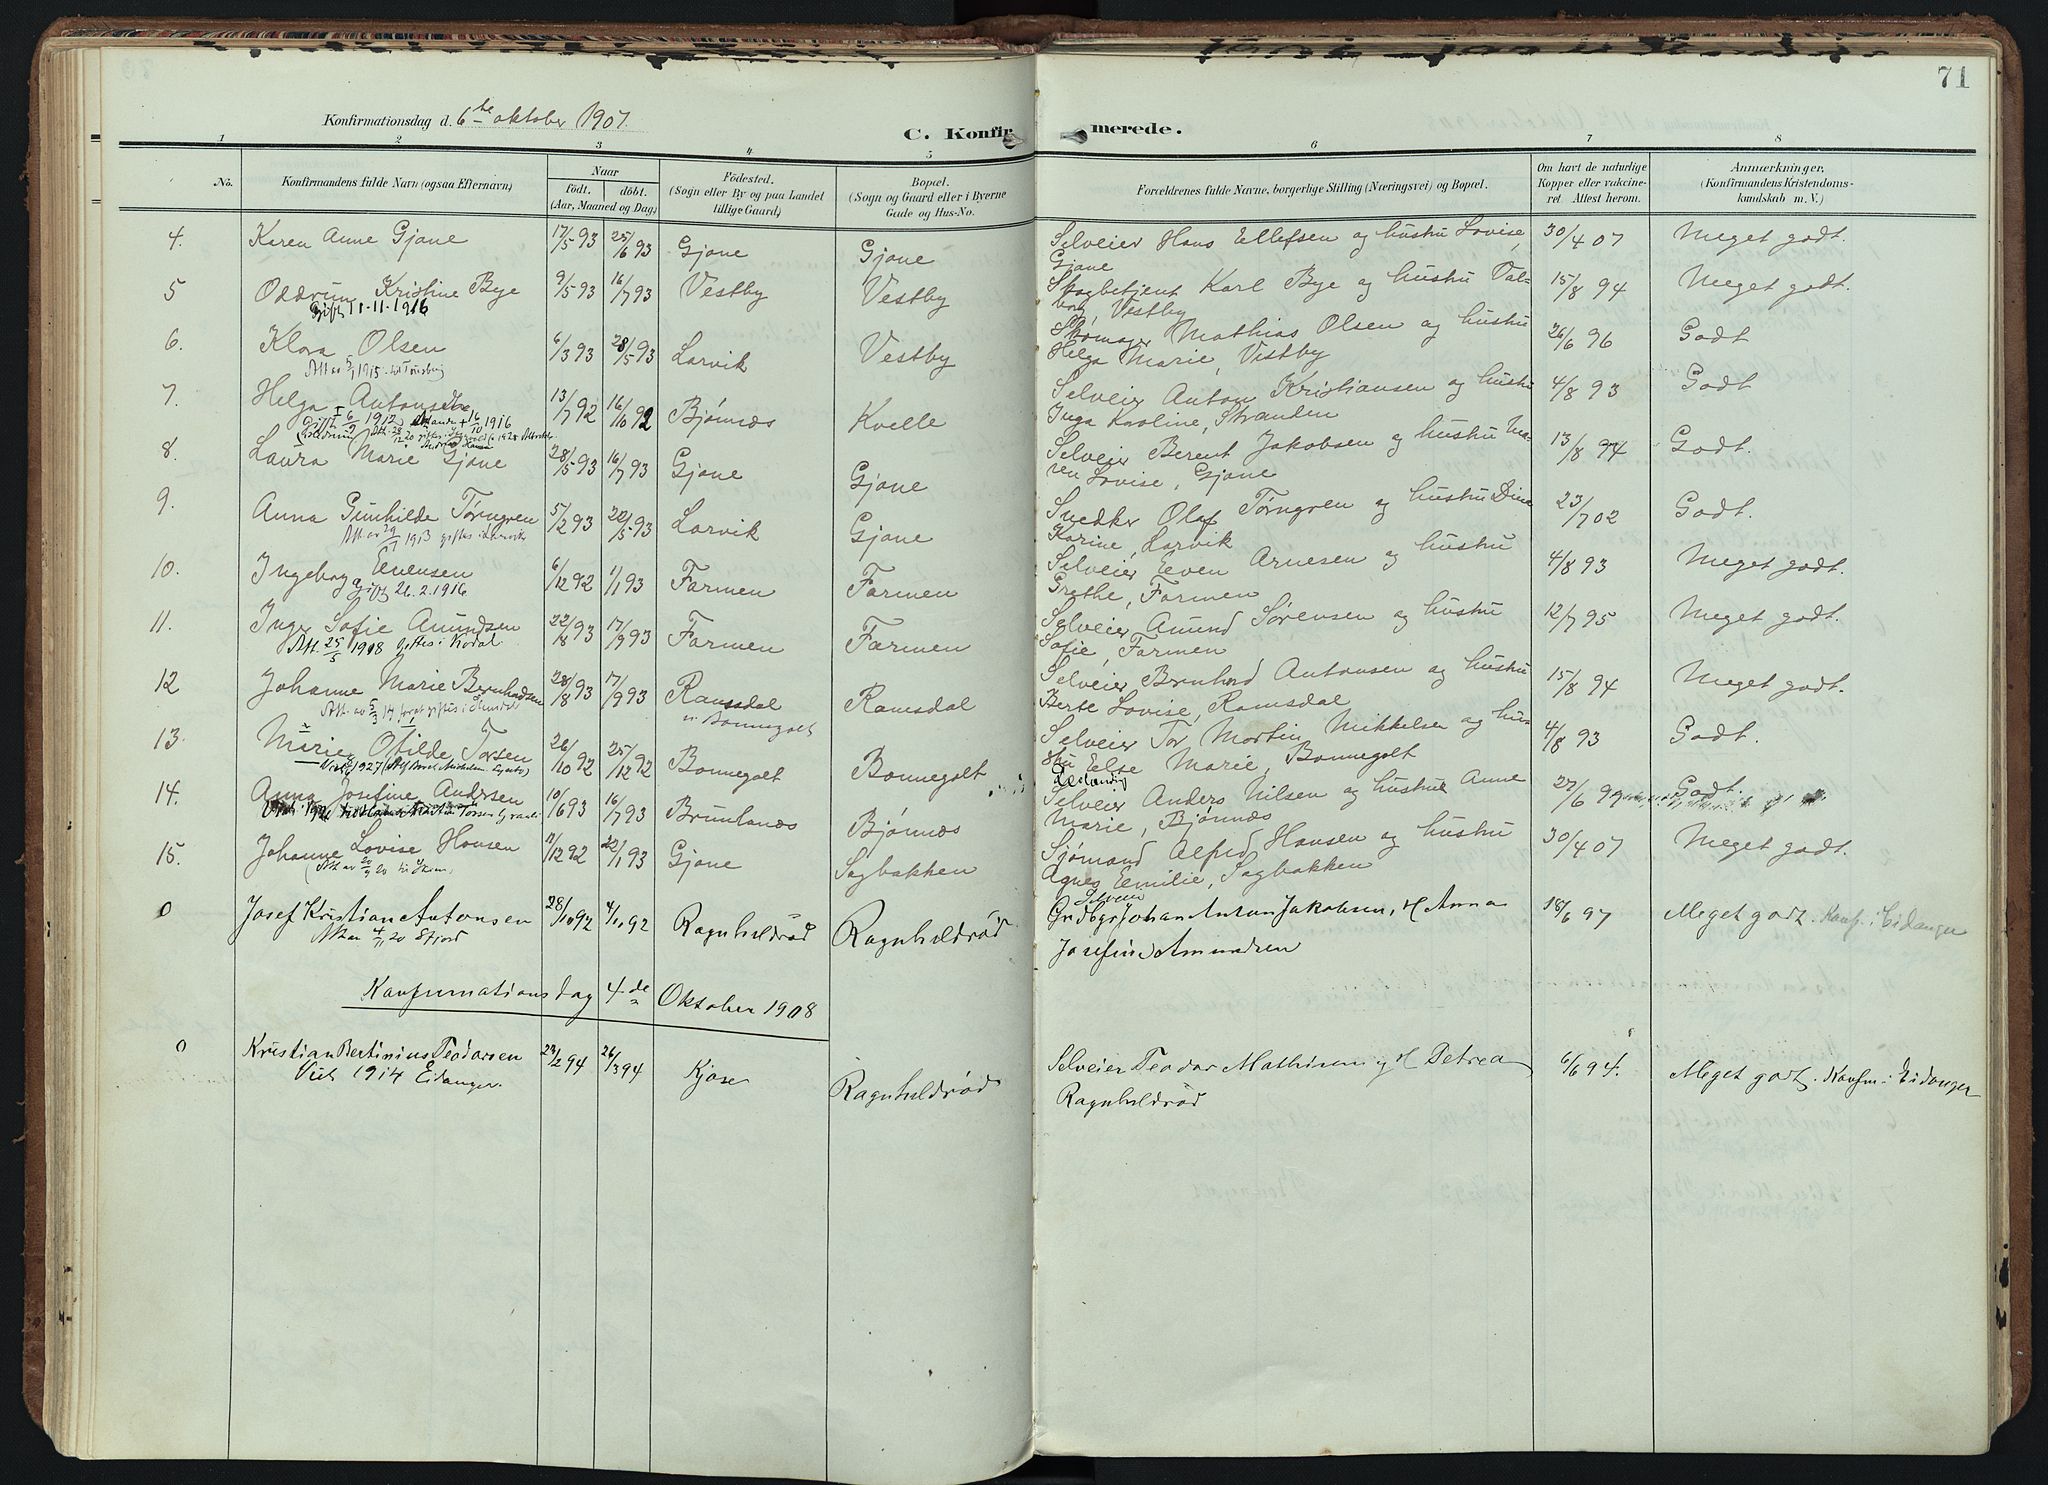 71
Konfirmationsdag d. 6te oktober 1907.
C. Konfirmerede.
1 2 3 4 5 6 7 8
No.
Konfirmandens fulde Navn (ogsaa Efternavn)
Naar
født. døbt.
(Aar, Maaned og Dag)
Fødested.
(Sogn eller By og paa Landet
tillige Gaard)
Bopæl.
(Sogn og Gaard eller i Byerne
Gade og Hus-No.
Forældrenes fulde Navne, borgerlige Stilling (Næringsvei) og Bopæl.
Om havt de naturlige
Kopper eller vakcine-
ret. Attest herom.
Anmærkninger,
(Konfirmandens Kristendoms-
kundskab m. V.)
4. Karen Anne Gjone 17/5 93 25/6 93 Gjone Gjone Selveier Hans Ellefsen og hustru Lovise, 30/4 07 Meget godt.
Gjone
5 Oddrun Kristine Bye 9/5 93 16/7 93 Vestby Vestby Skogbetjent Karl Bye og hustru Val- 15/8 94 Meget godt.
Gift 11-11-1916 borg, Vestby
6. Klara Olsen 6/3 93 28/5 93 Larvik Vestby Skomager Mathias Olsen og hustru 26/6 96 Godt
Helga Marie, Vestby
7. Helga Antonsen 13/7 92 16/10 92 Bjønnes Kvelle Selveier Anton Kristiansen og hustru 4/8 93 Godt
Inga Karoline, Stranden
8. Laura Marie Gjone 28/5 93 16/7 93 Gjone Gjone Selveier Berent Jakobsen og hustru Ma- 13/8 94 Godt.
ren Lovise, Gjone
9. Anna Gunhilde Törngren 5/2 93 22/5 93 Larvik Gjone Snedker Olaf Törngren og hustru Dina 23/7 02 Godt.
Att. av 29/7 1913 giftes i Larvik Karine, Larvik
10. Ingeborg Evensen 6/12 92 1/1 93 Farmen Farmen Selveier Even Arnesen og hustru 4/8 93 Meget godt.
gift 26.2.1916 Grethe, Farmen
11. Inger Sofie Amundsen 22/8 93 17/9 93 Farmen Farmen Selveier Amund Sørensen og hustru 12/7 95 Meget godt.
Att. 25/5 1918 giftes i Kodal Sofie, Farmen
12 Johanne Marie Bernhardsen 28/8 93 17/9 93 Ramsdal Ramsdal Selveier Bernhard Antonsen og hustru 15/8 94 Meget godt.
u. Bonnegolt Berte Lovise, Ramsdal
13. Marie Otilde Torsen 26/10 92 25/12 92 Bonnegolt Bonnegolt Selveier Tor Martin Mikkelsen og hu- 4/8 93 Godt.
stru Else Marie, Bonnegolt
14. Anna Josefine Andersen 10/6 93 16/7 93 Brunlanes Bjønnes Selveier Anders Nilsen og hustru Anne Godt.
Marie, Bjønnes
15. Johanne Lovise Hansen 11/12 92 22/1 93 Gjone Sagbakken Sjømand Alfred Hansen og hustru 30/4 07 Meget godt.
Agnes Emilie, Sagbakken
0 Josef Kristian Antonsen 28/10 92 4/11 92 Ragnhildrød Ragnhildrød Selveier Johan Anton Jakobsen, H Anna 18/6 97 Meget godt. Konf. i Eidanger
Josefine Amundsen
Konfirmationsdag 4de Oktober 1908
0 Kristian Bertinius Teodorsen 24/2 94 26/3 94 Kjose Ragnhildrød Selveier Teodor Mathisen og H Petrea 6/6 94. Meget godt. Konfm. i Eidanger
Viet 1914 Eidanger. Ragnhildrød